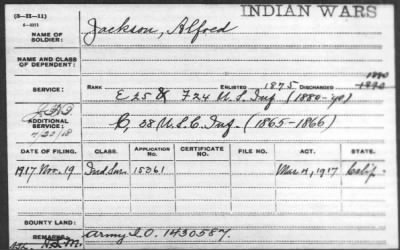 INDIAN WARS
(3-II-11)
NAME OF SOLDIER: Jackson, Alfred
NAME AND CLASS OF DEPENDENT:
SERVICE: RANK ENLISTED 1875 DISCHARGED 1880
E 25 & F 24 U.S. Inf. (1880-90)
ADDITIONAL SERVICE: C, 38 U.S.C. Inf. (1865-1866)
4/20/18
DATE OF FILING. CLASS. APPLICATION NO. CERTIFICATE NO. FILE NO. ACT. STATE.
1917 Nov. 19 Ind. Sur. 15361 Mar 4, 1917 Calif.
BOUNTY LAND:
REMARKS: Army I.O. 1430587.